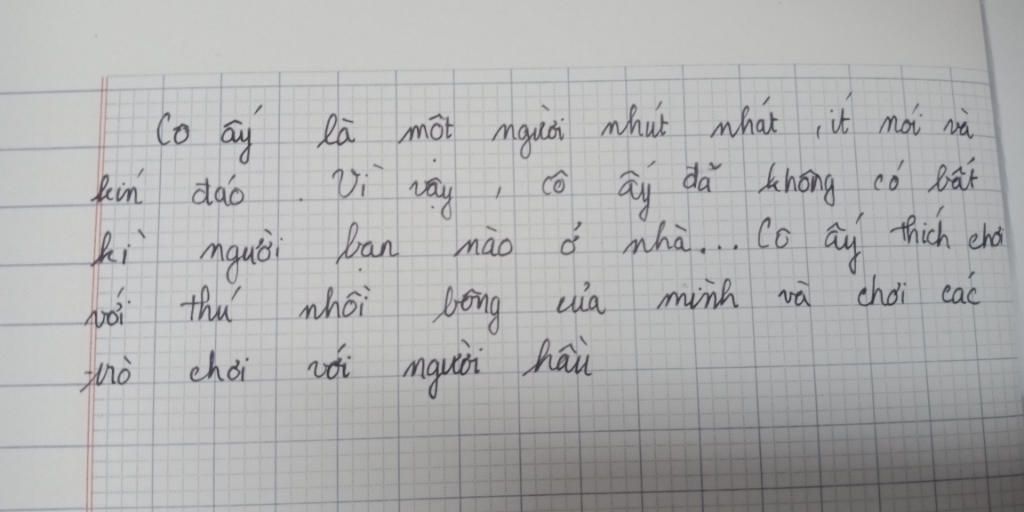 Cô ấy là một người nhút nhát, ít nói và
kín đáo. Vì vậy, cô ấy đã không có bất
kì người bạn nào ở nhà... Cô ấy thích chơi
với thú nhồi bông của mình và chơi các
trò chơi với người hầu